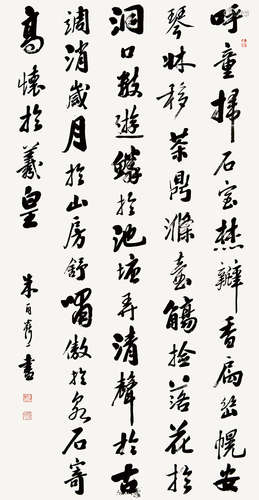 呼童掃石室焚瓣香扃岫幌安
琴牀移茶鼎滌壺觴捡落花於
洞口数遊鱗於池塘弄清聲於古
調消歲月於山房舒嘯傲於泉石寄
高懷於羲皇
朱自書